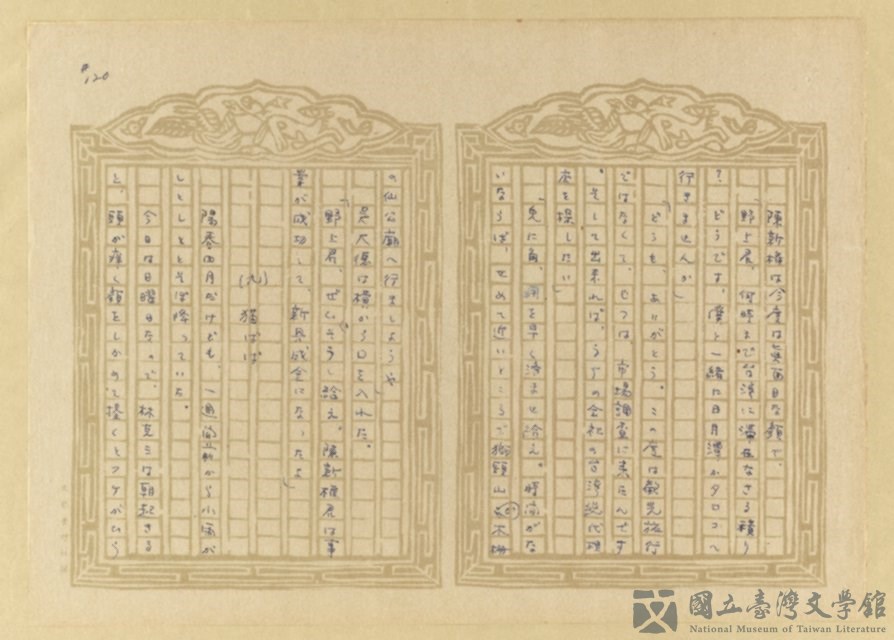 #120
陳新権は今度は真面目な顔で、
「野上君、何時まで台湾に滞在なさる積り
？どうです。僕と一緒に日月潭かタロコへ
行きませんか」
「どうも、ありがとう。この度は観光旅行
ではなくて、じつは、市場調査に来たんです
。そして出来れば、うちの会社の台湾総代理
店を探したい」
「兎に角、用を早く済ませ給え。時間がな
いならば、せめて近いところで獅頭山とか
の仙公廟へ行きましょうや」
呉大原は横から口を入れた。
「野上君、ぜひそうし給え。陳新権君は事
業が成功して、新興成金になったよ」
(九) 猫ばば
陽春四月だけども、一週間前から小雨が
しとしととそぼ降っていた。
今日は日曜日なので、林克三は朝起きる
と、頭が痒く顔をしかめて掻くとフケがひら
國立臺灣文學館
National Museum of Taiwan Literature